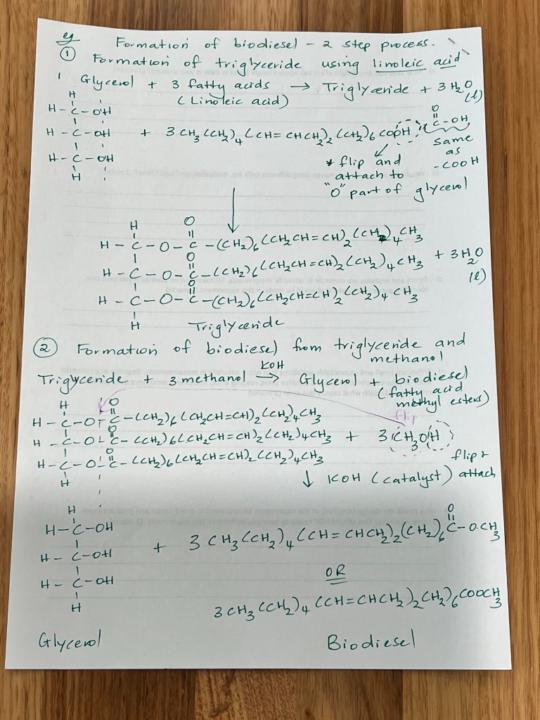 eg Formation of biodiesel - 2 step process.
① Formation of triglyceride using linoleic acid
Glycerol + 3 fatty acids → Triglyceride + 3H₂O (l)
(Linoleic acid)
H
H - C - OH
H - C - OH + 3 CH₃(CH₂)₄(CH=CHCH₂)₂(CH₂)₆COOH
H - C - OH
H
O
C - OH
same
as
-COOH
* flip and
attach to
"O" part of glycerol
↓
H O
H - C - O - C - (CH₂)₆(CH₂CH=CH)₂(CH₂)₄CH₃
O
H - C - O - C - (CH₂)₆(CH₂CH=CH)₂(CH₂)₄CH₃ + 3H₂O (l)
O
H - C - O - C - (CH₂)₆(CH₂CH=CH)₂(CH₂)₄CH₃
H
Triglyceride
② Formation of biodiesel from triglyceride and
methanol
Triglyceride + 3 methanol KOH → Glycerol + biodiesel
(fatty acid
methyl esters)
flip
H O
H - C - O - C - (CH₂)₆(CH₂CH=CH)₂(CH₂)₄CH₃
O
H - C - O - C - (CH₂)₆(CH₂CH=CH)₂(CH₂)₄CH₃ + 3 CH₃OH
O
H - C - O - C - (CH₂)₆(CH₂CH=CH)₂(CH₂)₄CH₃
H
flip +
attach
↓ KOH (catalyst)
H
H - C - OH O
H - C - OH + 3 CH₃(CH₂)₄(CH=CHCH₂)₂(CH₂)₆C - OCH₃
H - C - OH
H
OR
3 CH₃(CH₂)₄(CH=CHCH₂)₂(CH₂)₆COOCH₃
Glycerol Biodiesel